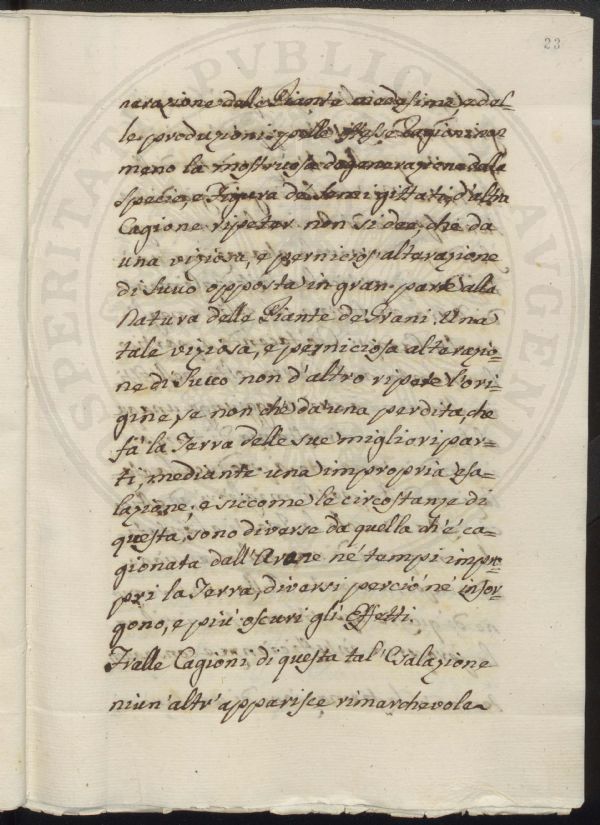 23
nerazione delle Piante medesime, e del-
le produzioni, pelle istesse Cagioni ne
meno la mostruosa degenerazione della
specie, e Figura de' Semi gittati, d'altra
Cagione ripeter non si dee, che da
una viziosa, e pernicios' alterazione
di Succo opposta in gran parte alla
Natura delle Piante de' Grani. Una
tale viziosa, e perniciosa alterazio-
ne di Succo non d'altro ripete l'ori-
gine, se non che da una perdita, che
fà la Terra delle sue migliori par-
ti, mediante una impropria esa-
lazione; e siccome le circostanze di
questa, sono diverse da quella ch'è ca-
gionata dall'Arare ne' tempi impro-
prj la Terra, diversi perciò ne insor-
gono, e più oscuri gli Effetti.
Tralle Cagioni di questa tal' Esalazione
niun' altr' apparisce rimarchevole